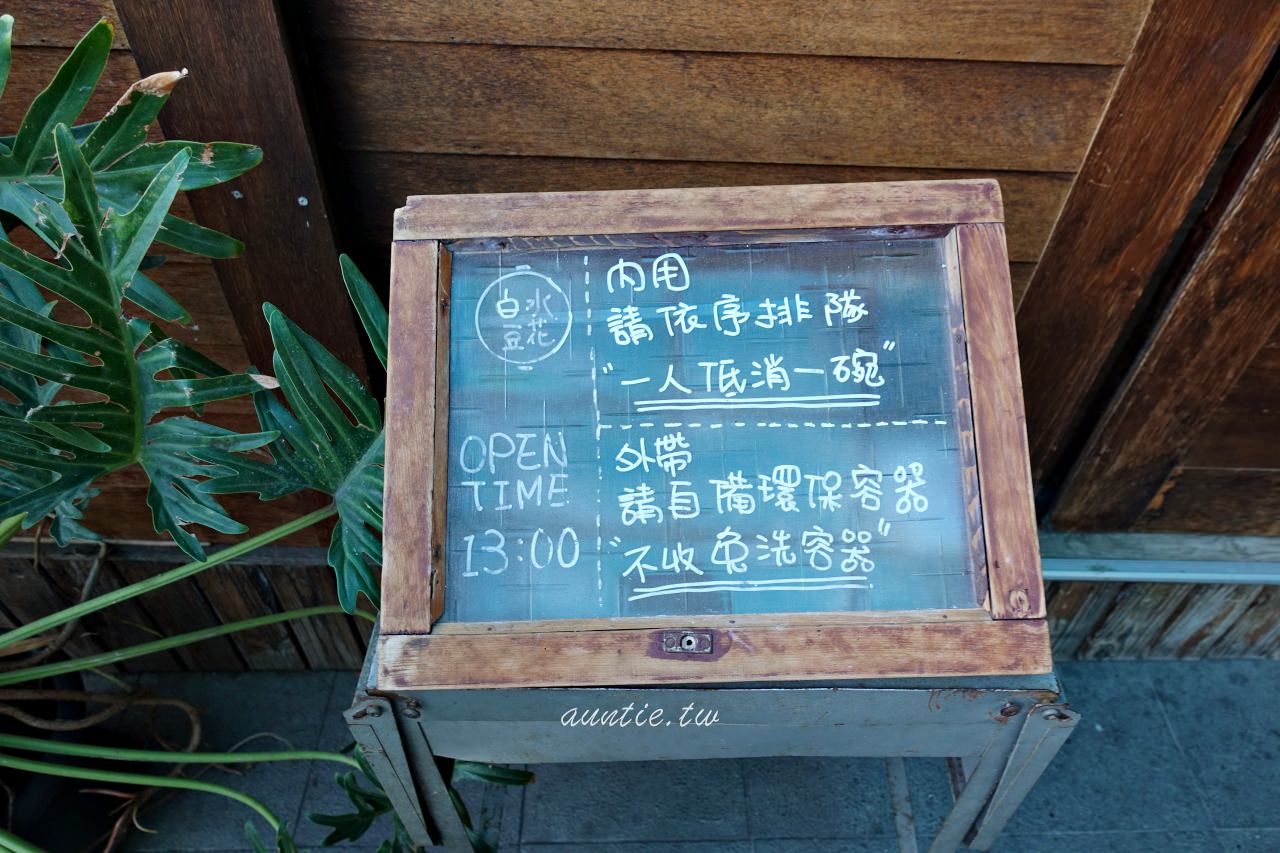 白水
豆花
OPEN
TIME
13:00
內用
請依序排隊
"一人低消一碗"
外帶
請自備環保容器
"不收免洗容器"
auntie.tw